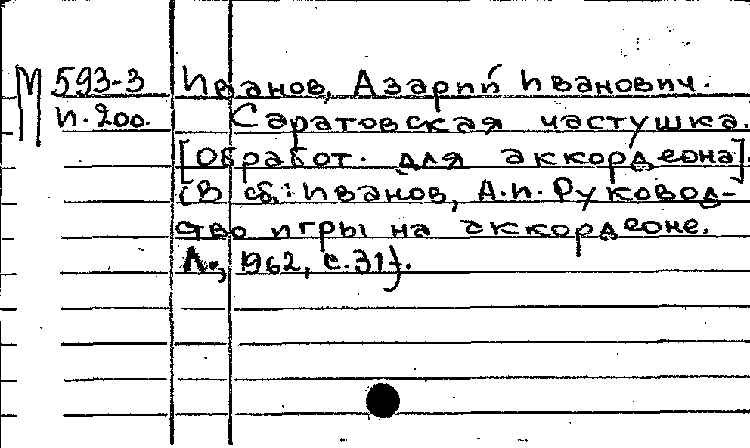 М 593-3 Иванов, Азарий Иванович.
И.200. Саратовская частушка.
[Обработ. для аккордеона].
(В сб.: Иванов, А.И. Руковод-
ство игры на аккордеоне.
Л., 1962, с.31).